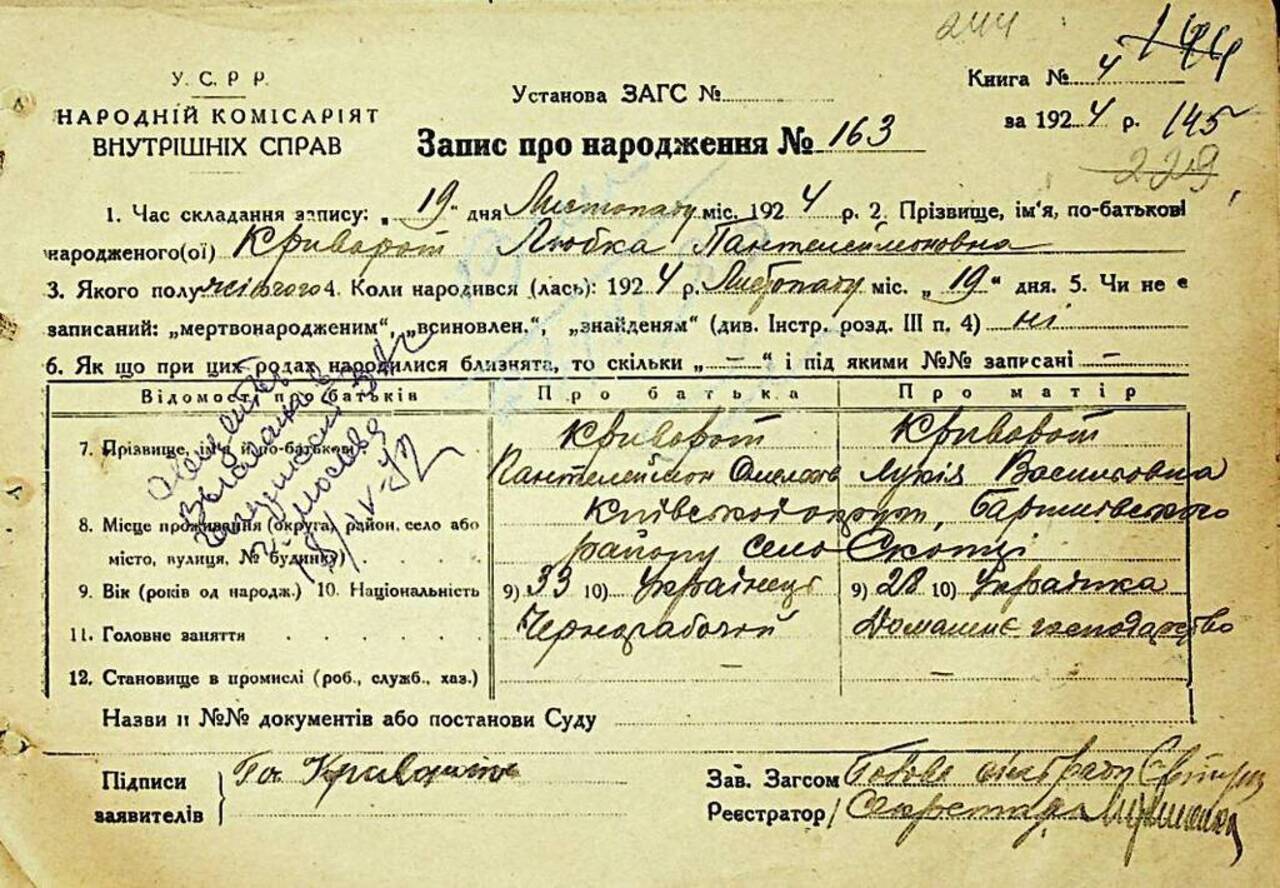 244
У. С. Р Р.
НАРОДНІЙ КОМІСАРІЯТ
ВНУТРІШНІХ СПРАВ
Установа ЗАГС №
Запис про народження № 163
Книга № 4 144
за 1924 р. 145
229
1. Час складання запису: „19" дня Листопаду міс. 1924 р. 2. Прізвище, ім'я, по-батькові
народженого(ої) Криворот Любка Пантелеймоновна
3. Якого полу жіночого 4. Коли народився (лась): 1924 р. Листопаду міс. „19" дня. 5. Чи не є
записаний: „мертвонародженим", „всиновлен.", „знайденям" (див. Інстр. розд. III п. 4) ні
6. Як що при цих родах народилися близнята, то скільки „—" і під якими №№ записані —
Відомості про батьків Про батька Про матір
7. Прізвище, ім'я й по-батькові Криворот Криворот
Пантелеймон Лукія Василовна
8. Місце проживання (округа, район, село або Київської округи, Баришівського
місто, вулиця, № будинку) району село Скопці
9. Вік (років од народж.) 10. Національність 9) 33 10) Українець 9) 28 10) Українка
11. Головне заняття Чернорабочий Домашнє господарство
12. Становище в промислі (роб., служб., хаз.) — —
Назви и №№ документів або постанови Суду
Підписи
заявителів
Зав. Загсом Голова сільради
Реєстратор Секретар